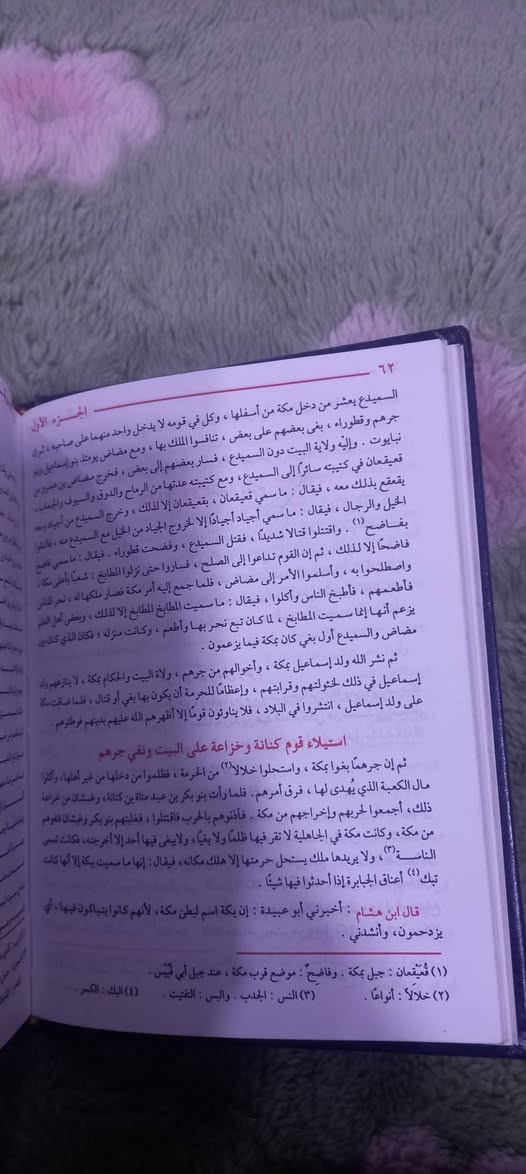 ٦٢ الجـزء الأول
السميدع يعشر من دخل مكة من أسفلها ، وكل في قومه لا يدخل واحد منهما على صاحبه ، ثم إن
جرهم وقطوراء ، بغى بعضهم على بعض ، تنافسوا الملك بها ، ومع مضاض يومئذ بنو إسماعيل وبنو
نبايوت . وإليه ولاية البيت دون السميدع ، فسار بعضهم إلى بعض ، فخرج مضاض بن عمرو من
قعيقعان في كتيبته سائرًا إلى السميدع ، ومع كتيبته عدتها من الرماح والدرق والسيوف والجعاب ،
يقعقع بذلك معه ، فيقال : ما سمي قعيقعان ، بقعيقعان إلا لذلك ، وخرج السميدع من أجياد ومعه
الخيل والرجال ، فيقال : ما سمي أجياد أجيادًا إلا لخروج الجياد من الخيل مع السميدع منه ، فالتقوا
بفـاضح(١) . واقتتلوا قتالا شديدًا ، فقتل السميدع ، وفضحت قطوراء . فيقال : ما سمي فاضح
فاضحًا إلا لذلك ، ثم إن القوم تداعوا إلى الصلح ، فساروا حتى نزلوا المطابخ : شعبًا بأعلى مكة ،
واصطلحوا به ، وأسلموا الأمر إلى مضاض ، فلما جمع إليه أمر مكة فصار ملكها له ، نحر للناس
فأطعمهم ، فأطبخ الناس وأكلوا ، فيقال : ما سميت المطابخ المطابخ إلا لذلك ، وبعض أهل العلم
يزعم أنها إنما سميت المطابخ ، لما كان تبع نحر بها وأطعم ، وكانت منزله ؛ فكان الذي كان بين
مضاض والسميدع أول بغي كان بمكة فيما يزعمون .
ثم نشر الله ولد إسماعيل بمكة ، وأخوالهم من جرهم ، ولاة البيت والحكام بمكة ، لا ينازعهم ولد
إسماعيل في ذلك لخئولتهم وقرابتهم ، وإعظامًا للحرمة أن يكون بها بغي أو قتال ، فلما ضاقت مكة
على ولد إسماعيل ، انتشروا في البلاد ، فلا يناوئون قومًا إلا أظهرهم الله عليهم بدينهم فوطئوهم .
استيلاء قوم كنانة وخزاعة على البيت ونفي جرهم
ثم إن جرهمًا بغوا بمكة ، واستحلوا خلالاً(٢) من الحرمة ، فظلموا من دخلها من غير أهلها، وأكلوا
مال الكعبة الذي يُهدى لها ، فرق أمرهم. فلما رأت بنو بكر بن عبد مناة بن كنانة، وغبشان من خزاعة
ذلك، أجمعوا لحربهم وإخراجهم من مكة . فآذنوهم بالحرب فاقتتلوا ، فغلبتهم بنو بكر وغبشان فنفوهم
من مكة، وكانت مكة في الجاهلية لا تقر فيها ظلمًا ولا بغيًا، ولا يبغي فيها أحد إلا أخرجته، فكانت تسمى
الناســة(٣)، ولا يريدها ملك يستحل حرمتها إلا هلك مكانه، فيقال: إنها ما سميت ببكة إلا أنها كانت
تبك(٤) أعناق الجبابرة إذا أحدثوا فيها شيئًا .
قال ابن هشام : أخبرني أبو عبيدة : إن بكة اسم لبطن مكة، لأنهم كانوا يتباكون فيها ، أي
يزدحمون، وأنشدني .
(١) قُعَيْقِعان : جبل بمكة . وفاضِحٌ : موضع قرب مكة ، عند جبل أبي قُبَيْس .
(٢) خلالاً : أنواعًا . (٣) النس : الجدب . والبس : التفتيت . (٤) البك : الكسر .